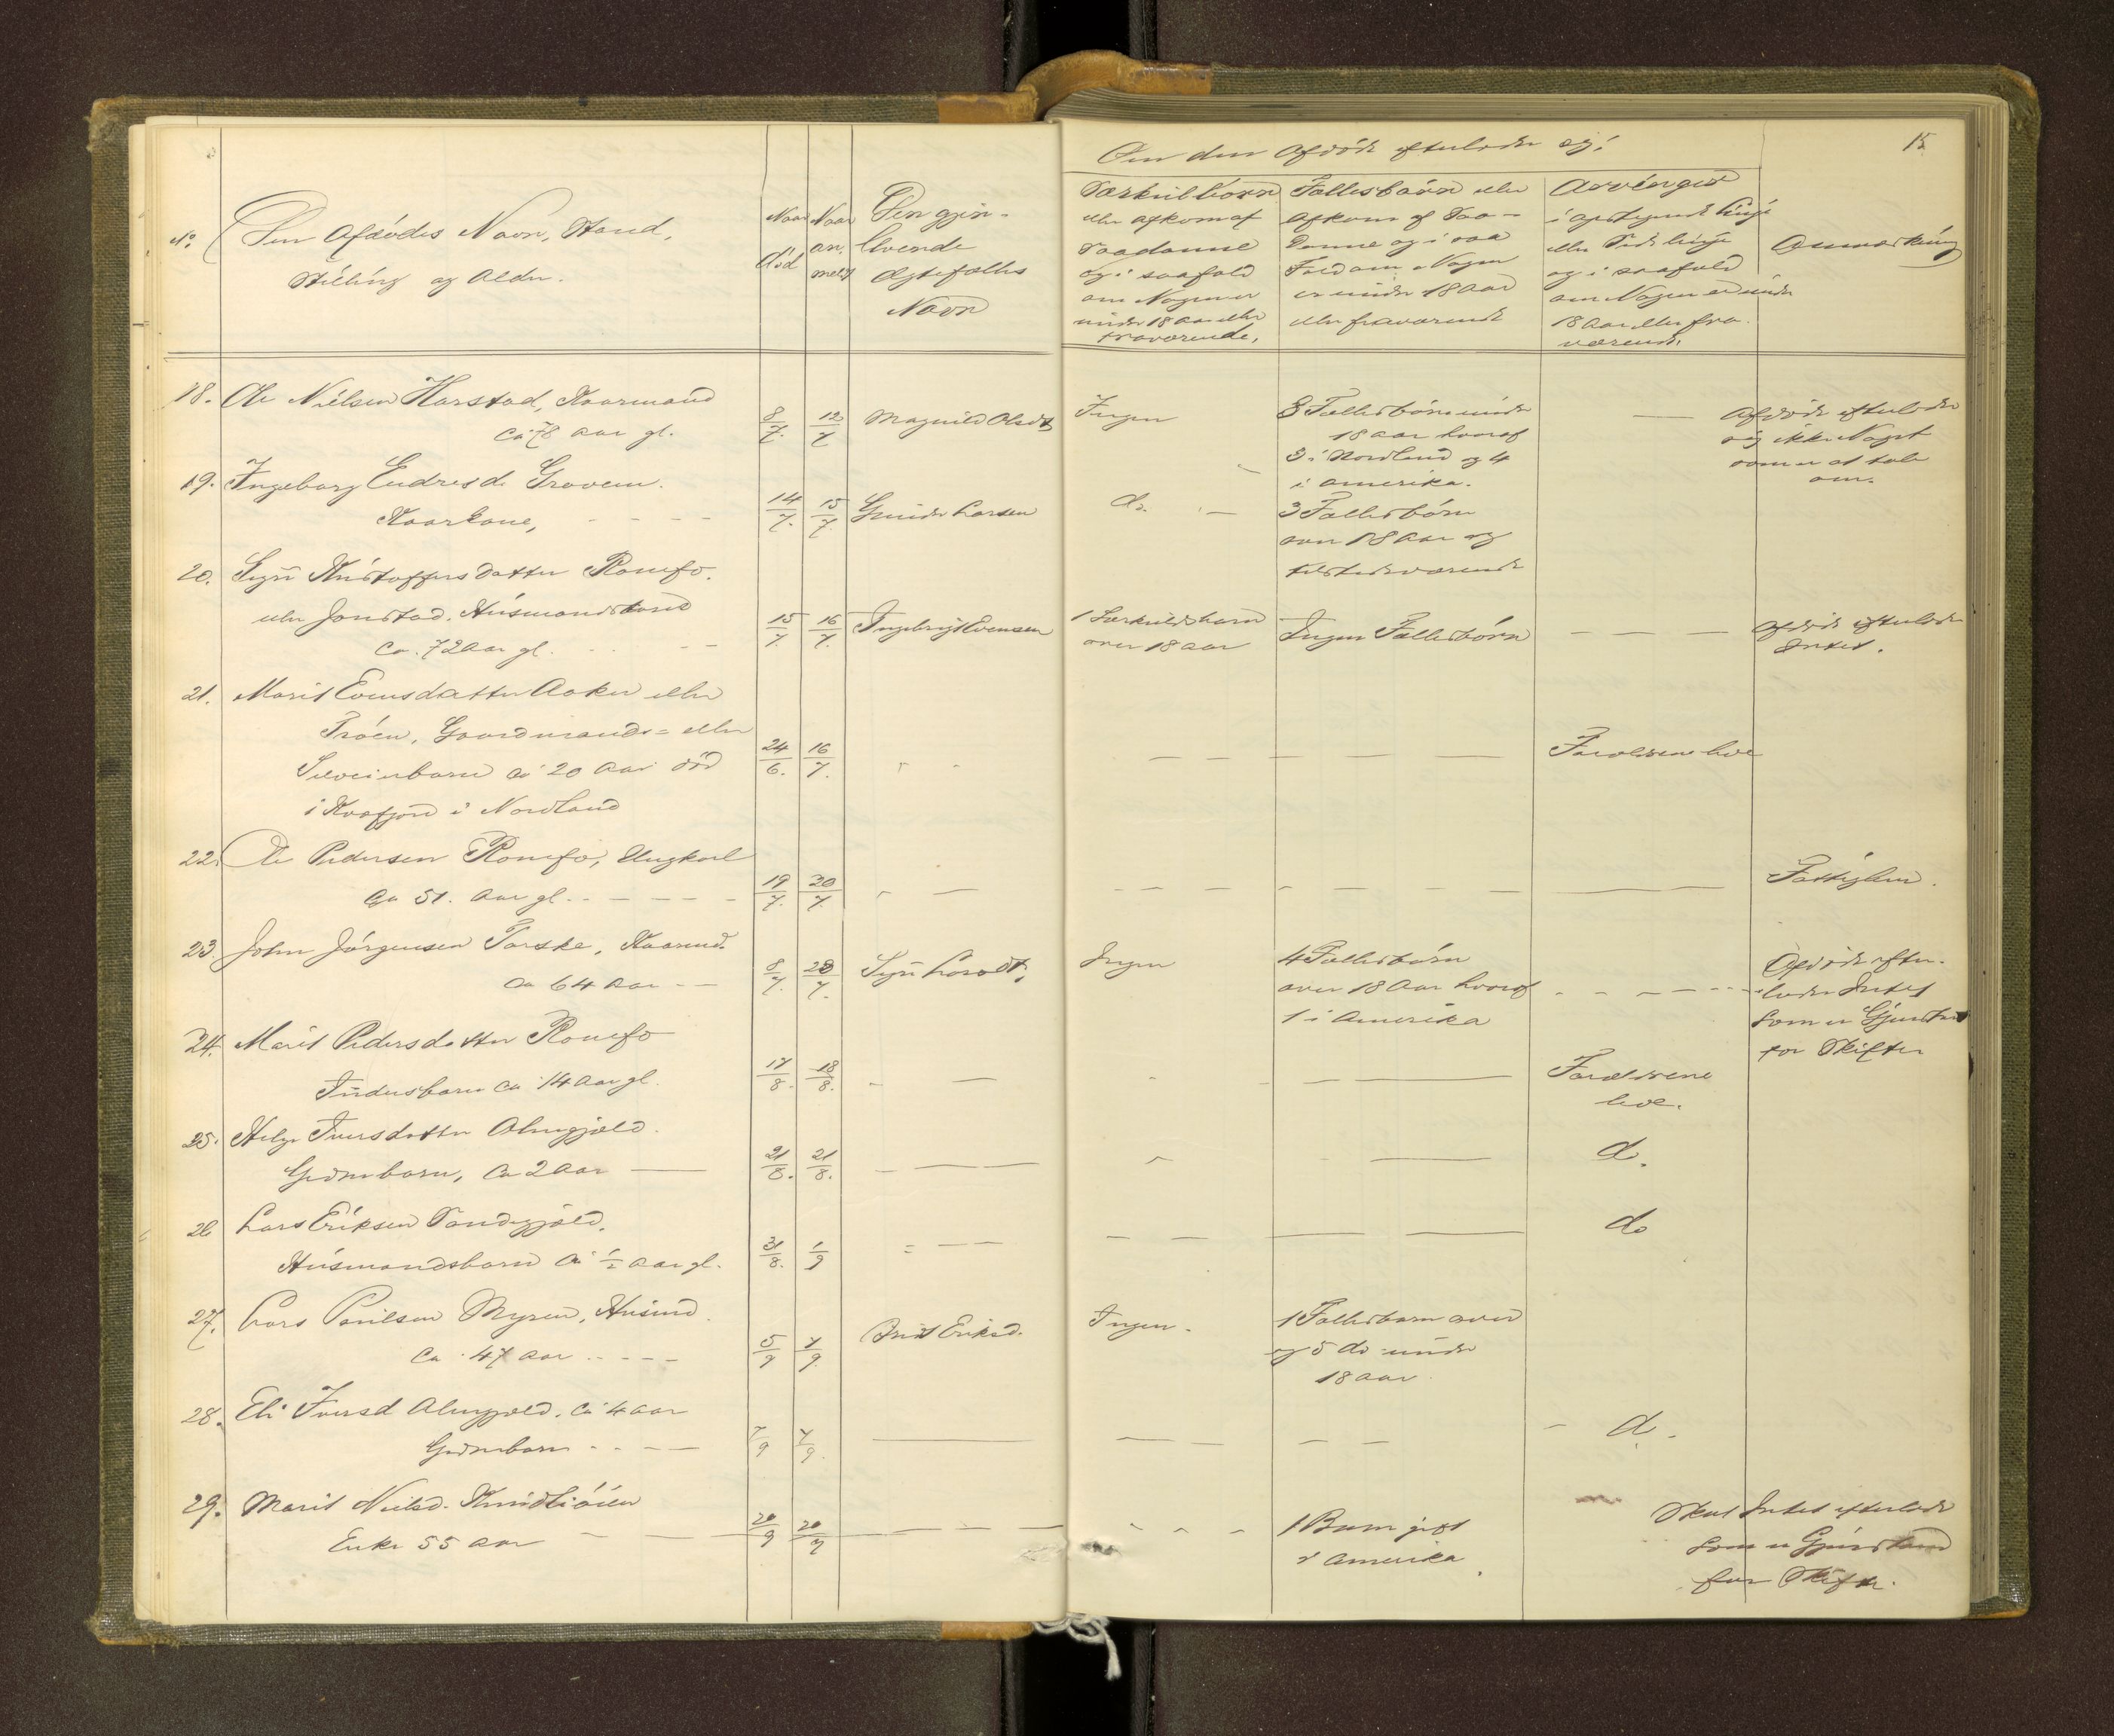 15
Om den Afdöde efterlader sig:
No.
Den Afdödes Navn, Stand,
Stilling og Alder.
Naar
död
Naar
an.
meldt
Den gjen-
levende
Ægtefælles
Navn
Særkuldbörn
eller Afkom af
Saadanne
og i saafald
om Nogen er
under 18 Aar eller
fraværende.
Fællesbörn eller
Afkom af Saa-
danne og i saa
Fald om Nogen
er under 18 Aar
eller fraværende
Arvinger
i opstigende Linje
eller Sidelinje
og i saafald
om Nogen er under
18 Aar eller fra-
værende.
Anmærkning
18. Ole Nielsen Harstad, Kaarmand
ca 78 aar gl.
8/7. 12/7 Magnild Olsdt
Ingen
8 Fællesbörn under
18 aar hvoraf
3 i Nordland og 4
i Amerika.
Afdöde efterlader
sig ikke Noget
som er at tale
om.
19. Ingeborg Endresd. Groven.
Kaarkone, - - - -
14/7. 15/7. Gunder Larsen
do. -
3 Fællesbörn
over 18 Aar og
tilstedeværende
20. Sigri Kristoffersdatter Romfo.
eller Jonstad. Husmandskone
Ca. 72 Aar gl.
15/7. 16/7. Ingebrigt Evensen
1 Særkuldsbarn
over 18 aar
Ingen Fællesbörn
- - - -
Afdöde efterlader
Intet.
21. Marit Evensdatter Aaker eller
Tröen, Gaardmands- eller
ca 20 Aar död
i Kvæfjord i Nordland
24/6. 16/7.
Forældrene leve
22. Ole Pedersen Romfo, Ungkarl
Ca 51. Aar gl. - - - -
19/7. 20/7.
Fattiglem.
23. John Jörgensen Torske, Kaarmd.
ca 64 Aar - -
8/7. 20/7. Sigri Larsdt,
Ingen
4 Fællesbörn
over 18 Aar hvoraf
1 i Amerika
Afdöde efter-
lader Intet
som er Gjenstand
for Skifte
24. Marit Pedersdatter Romfo
Inderstbarn ca 14 Aar gl.
17/8. 18/8.
Forældrene
leve.
25. Helge Iversdatter Almgjeld.
Gdmbarn, ca 2 Aar
21/8. 21/8.
do.
26 Lars Eriksen Sandgjeld.
Husmandsbarn ca 1/2 Aar gl.
31/8. 1/9
do
27. Lars Paulsen Myren, Husmd.
Ca. 47 Aar - - - -
5/9 7/9. Brit Eriksd.
Ingen.
1 Fællesbarn over
og 5 do under
18 aar.
28. Eli Iversd Almgjeld. ca 4 aar
Gdmbarn - - - -
7/9 7/9.
do.
29. Marit Nielsd.
Enke 55 aar
20/9 20/9
1 Barn gift
i Amerika.
Skal Intet efterlade
som er Gjenstand
for Skifte.